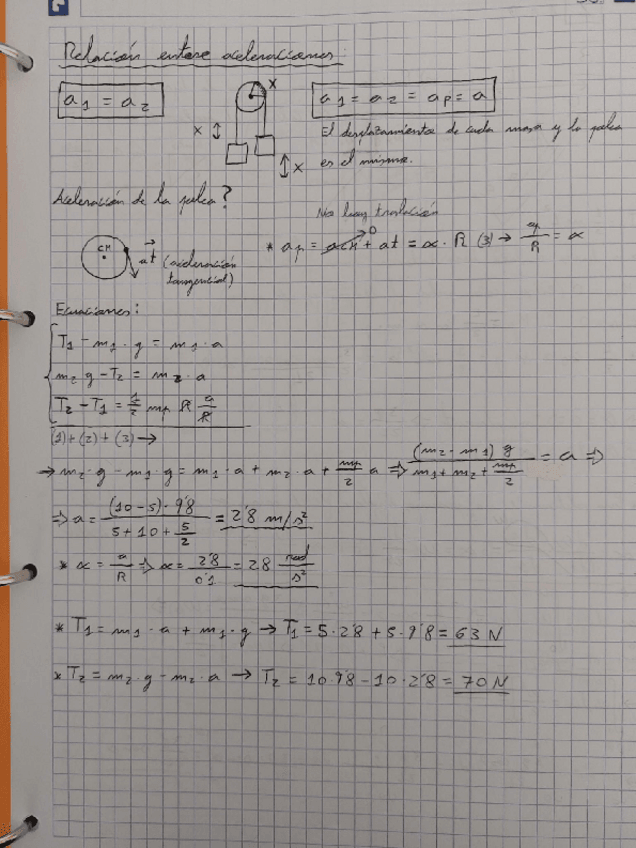 Relación entre aceleraciones
a1 = a2
x
x
x
a1 = a2 = ap = a
El desplazamiento de cada masa y la polea
es el mismo.
Aceleración de la polea?
No hay traslación
CM
at (aceleración
tangencial)
* ap = aCM 0 + at = α · R (3) → ap/R = α
Ecuaciones:
T1 - m1 · g = m1 · a
m2 g - T2 = m2 · a
T2 - T1 = 1/2 mp R a/R
(1) + (2) + (3) →
→ m2 · g - m1 · g = m1 · a + m2 · a + mp/2 a ⇒ (m2 - m1) g / m1 + m2 + mp/2 = a ⇒
⇒ a = (10 - 5) · 9'8 / 5 + 10 + 5/2 = 2'8 m/s²
* α = a/R ⇒ α = 2'8/0'1 = 28 rad/s²
* T1 = m1 · a + m1 · g → T1 = 5 · 2'8 + 5 · 9'8 = 63 N
* T2 = m2 · g - m2 · a → T2 = 10 · 9'8 - 10 · 2'8 = 70 N